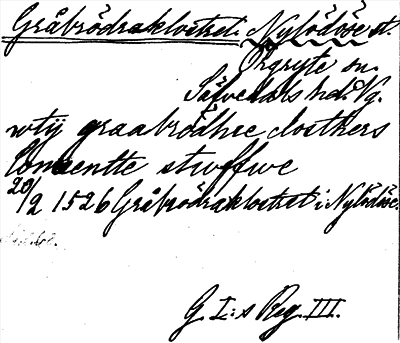 Gråbrödraklostret. Nylödöse st.
Örgryte sn.
Sävedals hd. Vg.
wtij graabrödhre closthers
Conuentte stuffwe
20/2 1526 Gråbrödraklostret i Nylödöse.
G. I:s Reg. III.